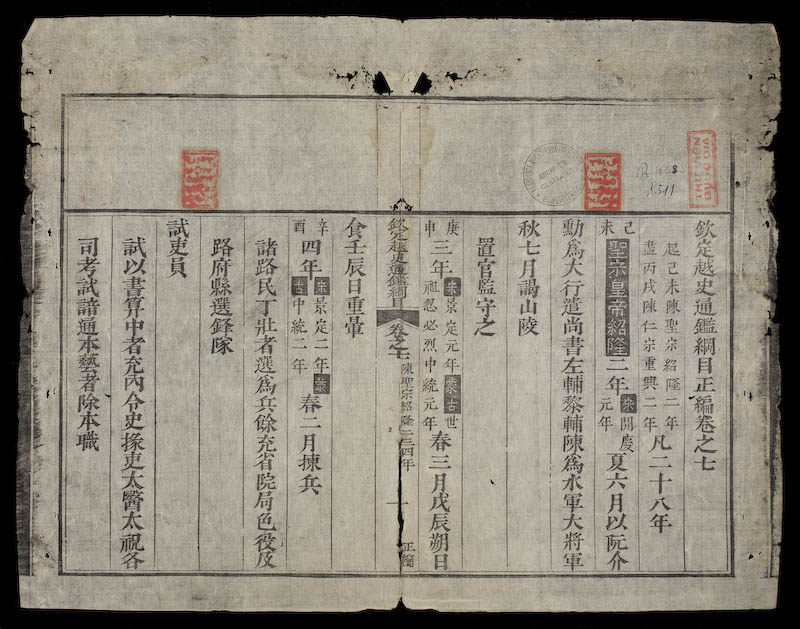 欽定越史通鑑綱目正編卷之七
起己未陳聖宗紹隆二年
盡丙戌陳仁宗重興二年
凡二十八年
己未聖宗皇帝紹隆二年宋開慶元年夏六月以阮介
勳為大行遣尚書左輔黎輔陳為水軍大將軍
秋七月謁山陵
置官監守之
庚申三年宋景定元年蒙古世祖忽必烈中統元年春三月戊辰朔日
欽定越史通鑑綱目卷之七陳聖宗紹隆二三四年一正編
食壬辰日重暈
辛酉四年宋景定二年蒙古中統二年春二月揀兵
諸路民丁壯者選為兵餘充省院局色役及
路府縣選鋒隊
試吏員
試以書算中者充內令史掾吏太醫太視各
司考試諳通本藝者除本職